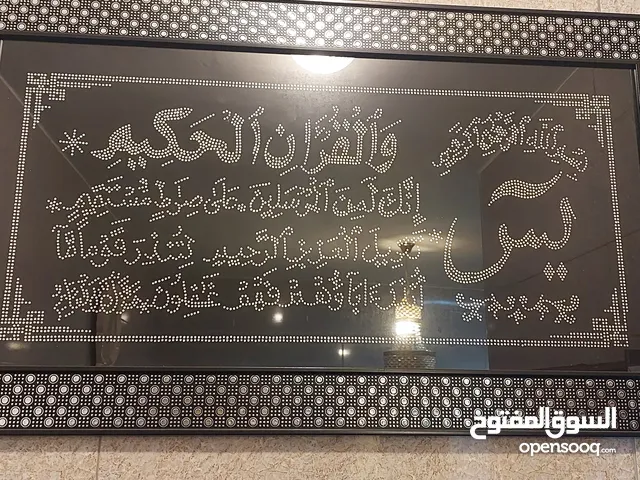 بسم الله الرحمن الرحيم
يس
والقرآن الحكيم
إنك لمن المرسلين على صراط مستقيم
تنزيل العزيز الرحيم لتنذر قوما
ما أنذر آباؤهم فهم غافلون
السوق المفتوح
opensooq.com